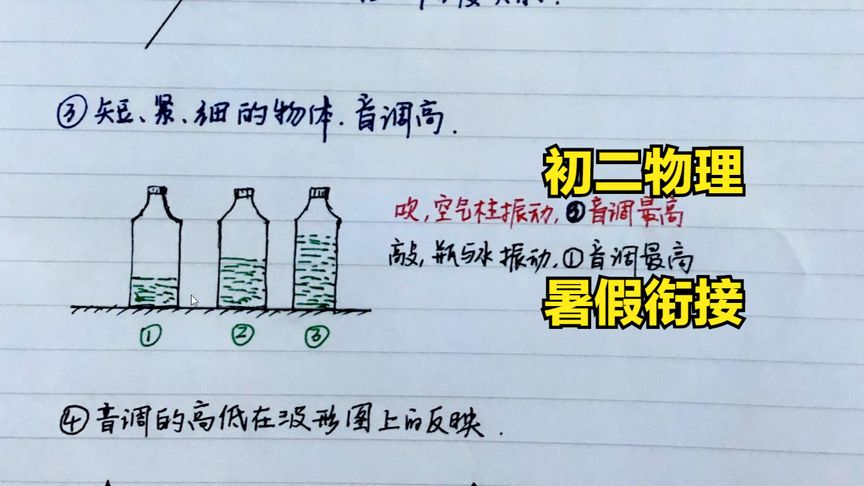 ③短、紧、细的物体.音调高.
初二物理
吹,空气柱振动,③音调最高
敲,瓶与水振动,①音调最高
暑假衔接
① ② ③
④音调的高低在波形图上的反映.